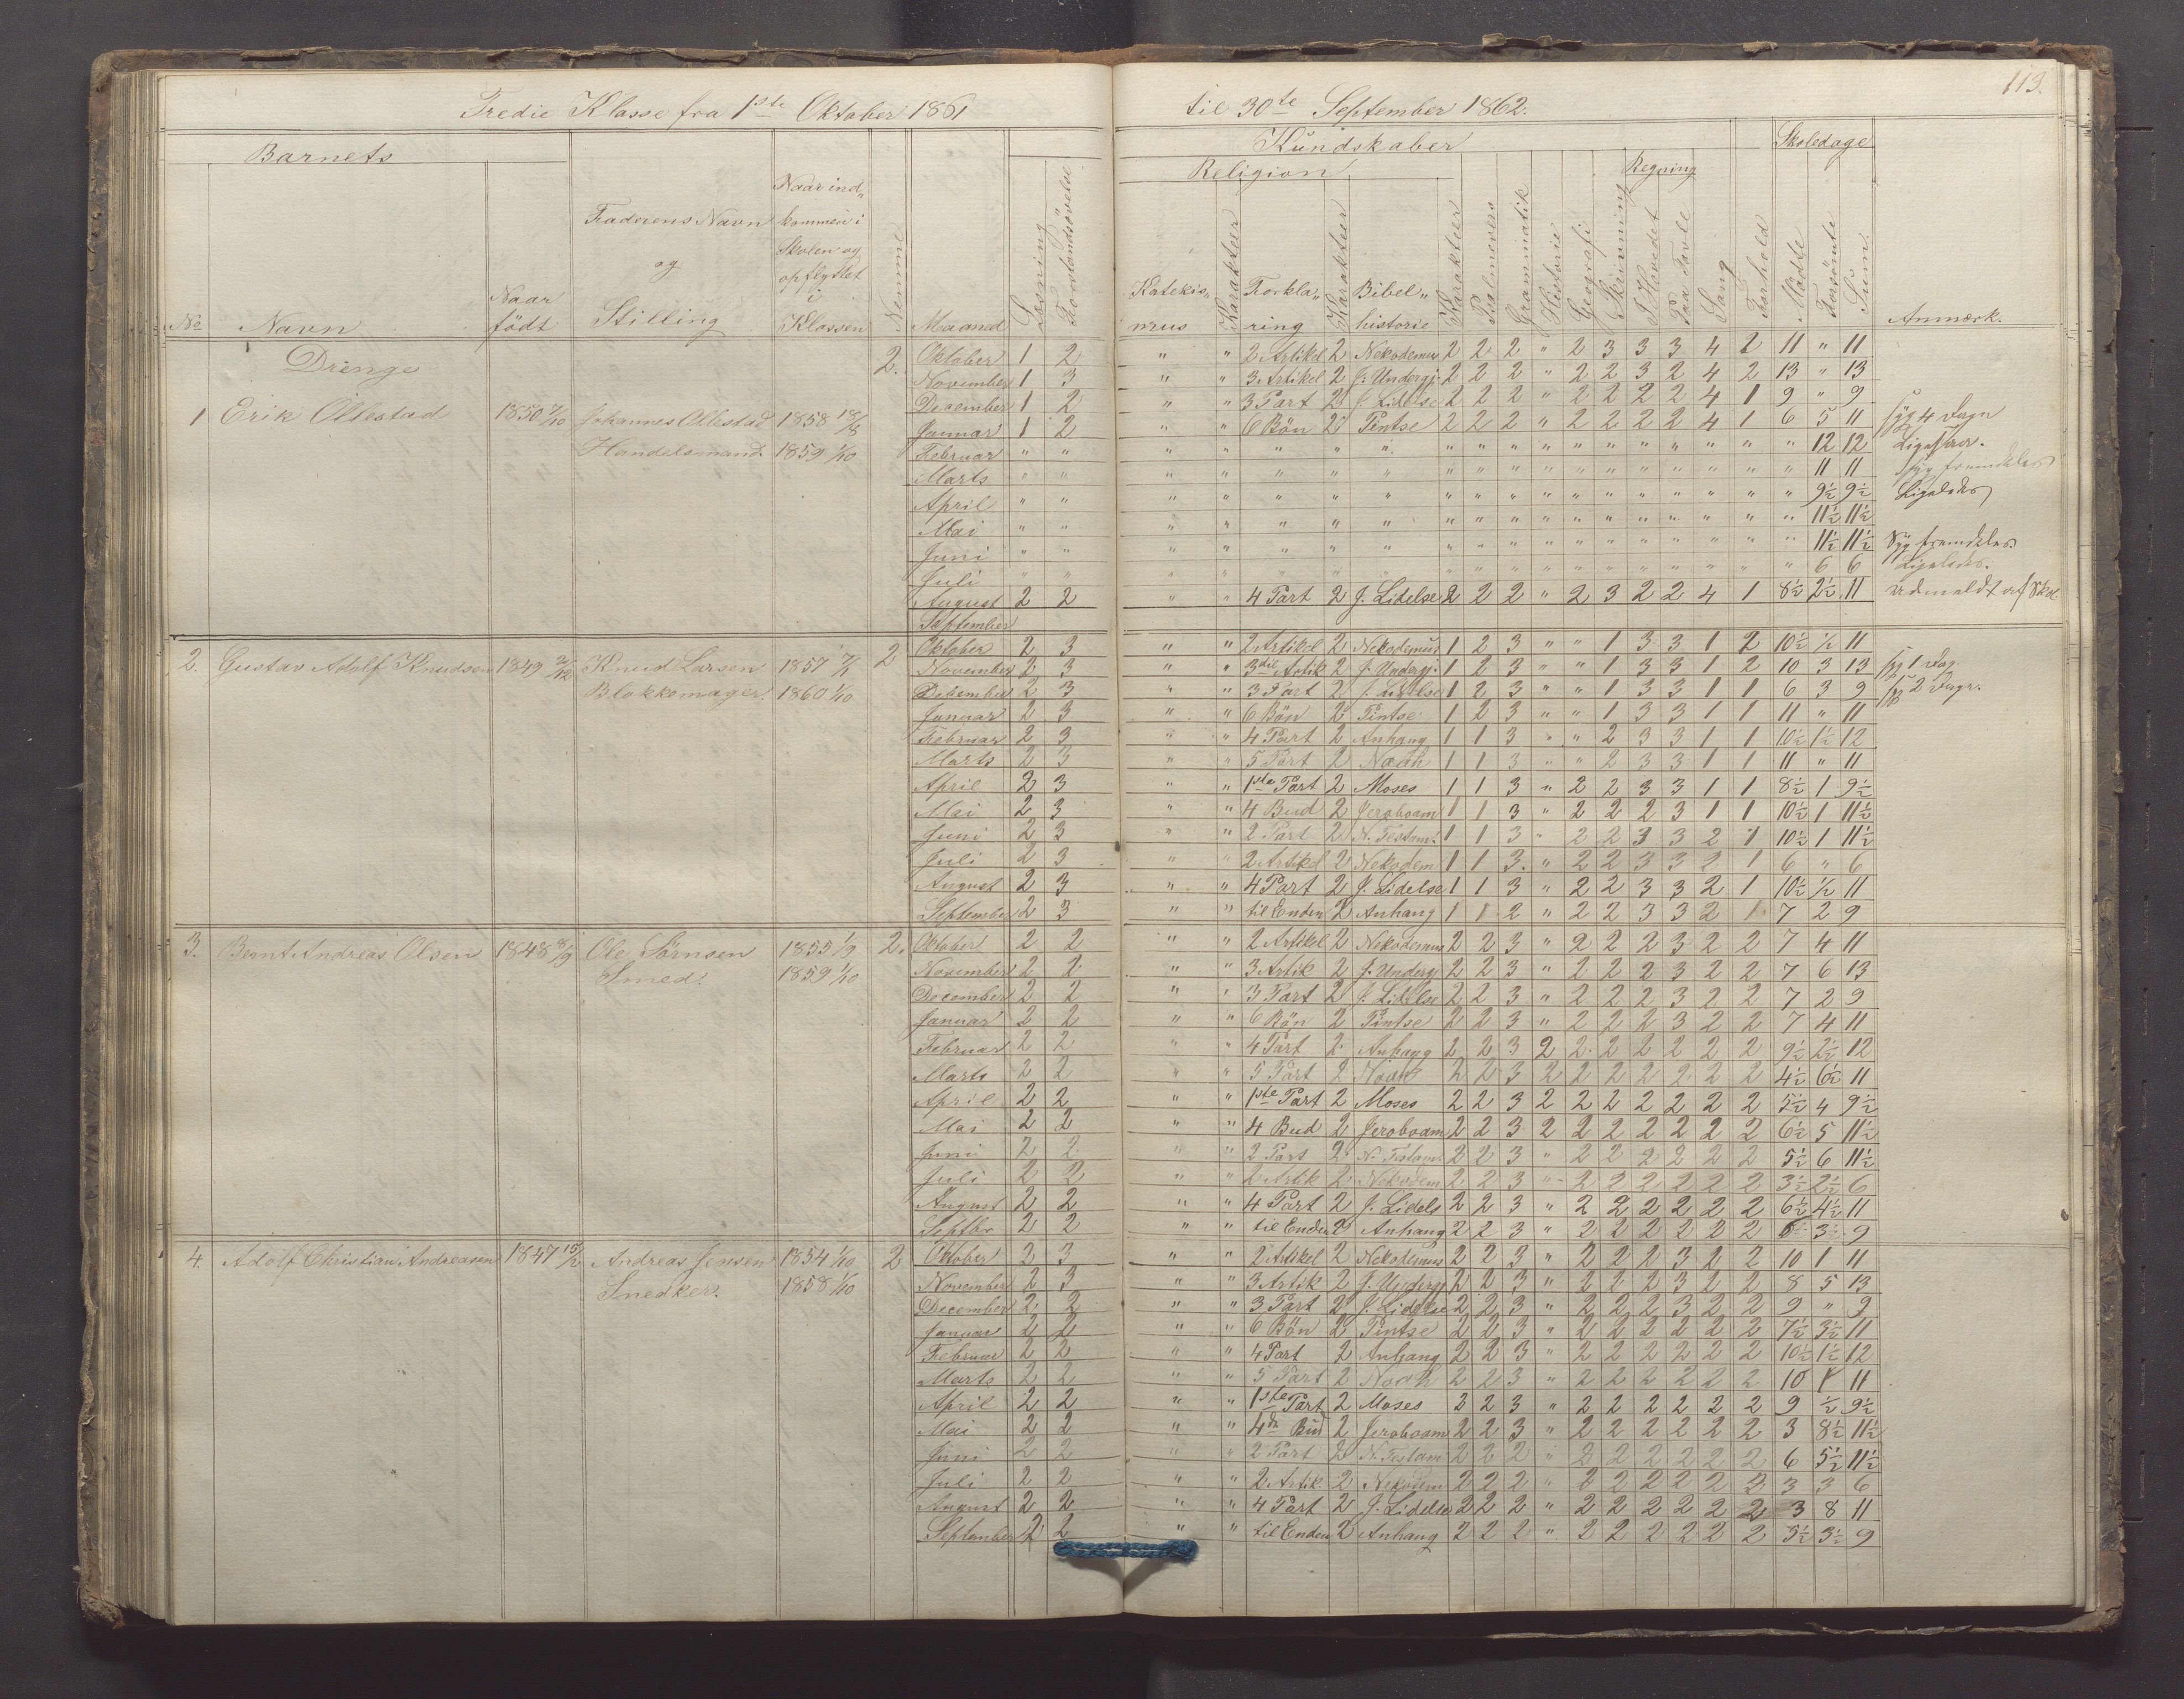 113.
Tredie Klasse fra 1ste Oktober 1861 til 30te September 1862.
Barnets Kundskaber Skoledage
Religion Regning
No Navn Naar födt Faderens Navn og Stilling Naar ind„kommen i Skolen og opflyttet i Klassen Nemme Maaned Læsning Forstandsövelse Katekis„mus Karakteer Forkla„ring Karakteer Bibel„historie Karakteer Psalmevers Grammatik Historie Geografi Skrivning I Hovedet Paa Tavle Sang Forhold Mödte Forsömte Sum Anmærk.
Drenge 2. Oktober 1 2 " " 2 Artikel 2 Nekodemus 2 2 2 " 2 3 3 3 4 2 11 " 11
November 1 3 " " 3 Artikel 2 J. Undergj. 2 2 2 " 2 2 3 2 4 2 13 " 13
December 1 2 " " 3 Part 2 J. Lidelse 2 2 2 " 2 2 2 2 4 1 9 " 9
1 Erik Ollestad 1850 7/10 Johannes Ollestad 1858 18/8 Januar 1 2 " " 6 Bön 2 Pintse 2 2 2 " 2 2 2 2 4 1 6 5 11 syg 4 Dage
Handelsmand 1859 1/10 Februar " " " " " " " " " " " " " " " " " " " 12 12
Marts " " " " " " " " " " " " " " " " " " " 11 11
April " " " " " " " " " " " " " " " " " " " 9½ 9½ Ligeledes
Mai " " " " " " " " " " " " " " " " " " " 11½ 11½
Juni " " " " " " " " " " " " " " " " " " " 11½ 11½ Syg fremdeles.
Juli " " " " " " " " " " " " " " " " " " " 6 6 Ligeledes.
August 2 2 " " 4 Part 2 J. Lidelse 2 2 2 " 2 3 2 2 4 1 8½ 2½ 11 udmeldt af Skol.
September
Oktober 2 3 " " 2 Artikel 2 Nekodemus 1 2 3 " " 1 3 3 1 2 10½ ½ 11
2. Gustav Adolf Knudsen 1849 2/12 Knud Larsen 1857 7/1 2 November 2 3 " " 3die Artik 2 J. Undergj. 1 2 3 " " 1 3 3 1 2 10 3 13 syg 1 Dag.
Blokkemager. 1860 1/10 December 2 3 " " 3 Part 2 J. Lidelse 1 2 3 " " 1 3 3 1 1 6 3 9 syg 2 Dage.
Januar 2 3 " " 6 Bön 2 Pintse 1 2 3 " " 1 3 3 1 1 11 " 11
Februar 2 3 " " 4 Part 2 Anhang 1 1 3 " " 2 3 3 1 1 10½ 1½ 12
Marts 2 3 " " 5 Part 2 Noah 1 1 3 " " 2 3 3 1 1 11 " 11
April 2 3 " " 1ste Part 2 Moses 1 1 3 " 2 2 3 3 1 1 8½ 1 9½
Mai 2 3 " " 4 Bud 2 Jeroboam 1 1 3 " 2 2 2 3 1 1 10½ 1 11½
Juni 2 3 " " 2 Part 2 N. Testam. 1 1 3 " 2 2 3 3 2 1 10½ 1 11½
Juli 2 3 " " 2 Artikel 2 Nekodem 1 1 3 " 2 2 3 3 2 1 6 " 6
August 2 3 " " 4 Part 2 J. Lidelse 1 1 3 " 2 2 3 3 2 1 10½ ½ 11
September 2 3 " " til Enden 2 Anhang 1 1 2 " 2 2 3 3 2 1 7 2 9
3. Bernt Andreas Olsen 1848 8/9 Ole Sörnsen 1855 1/9 2. Oktober 2 2 " " 2 Artikel 2 Nekodemus 2 2 3 " 2 2 2 3 2 2 7 4 11
Smed. 1859 1/10 November 2 2 " " 3 Artik 2 J. Undergj 2 2 3 " 2 2 2 3 2 2 7 6 13
December 2 2 " " 3 Part 2 J. Lidelse 2 2 3 " 2 2 2 3 2 2 7 2 9
Januar 2 2 " " 6 Bön 2 Pintse 2 2 3 " 2 2 2 3 2 2 7 4 11
Februar 2 2 " " 4 Part 2 Anhang 2 2 3 2 2 2 2 2 2 2 9½ 2½ 12
Marts 2 2 " " 5 Part 2 Noah 2 2 3 2 2 2 2 2 2 2 4½ 6½ 11
April 2 2 " " 1ste Part 2 Moses 2 2 3 2 2 2 2 2 2 2 5½ 4 9½
Mai 2 2 " " 4 Bud 2 Jeroboam 2 2 3 2 2 2 2 2 2 2 6½ 5 11½
Juni 2 2 " " 2 Part 2 N. Testam 2 2 3 " 2 2 2 2 2 2 5½ 6 11½
Juli 2 2 " " 2 Artik 2 Nekodem 2 2 3 " 2 2 2 2 2 2 3½ 2½ 6
August 2 2 " " 4 Part 2 J. Lidels 2 2 3 " 2 2 2 2 2 2 6½ 4½ 11
Septbr 2 2 " " til Enden 2 Anhang 2 2 3 " 2 2 2 2 2 2 3½ 9
4. Adolf Christian Andreasen 1847 15/2 Andreas Jensen 1854 1/10 2 Oktober 2 3 " " 2 Artikel 2 Nekodemus 2 2 3 " 2 2 2 3 2 2 10 1 11
Snedker. 1858 1/10 November 2 3 " " 3 Artik 2 J. Undergj 2 2 3 " 2 2 2 3 2 2 8 5 13
December 2 2 " " 3 Part 2 J. Lidelse 2 2 3 " 2 2 2 3 2 2 9 " 9
Januar 2 2 " " 6 Bön 2 Pintse 2 2 3 " 2 2 2 2 2 2 7½ 3½ 11
Februar 2 2 " " 4 Part 2 Anhang 2 2 3 " 2 2 2 2 2 2 10½ 1½ 12
Marts 2 2 " " 5 Part 2 Noah 2 2 3 " 2 2 2 2 2 2 10 1 11
April 2 2 " " 1ste Part 2 Moses 3 2 3 " 2 2 2 2 2 2 9 ½ 9½
Mai 2 2 " " 4de Bud 2 Jeroboam 2 2 3 " 2 2 2 2 2 2 3 8½ 11½
Juni 2 2 " " 2 Part 2 N. Testam 2 2 2 " 2 2 2 2 2 2 6 5½ 11½
Juli 2 2 " " 2 Artik. 2 Nekodem 2 2 2 " 2 2 2 2 2 2 3 3 6
August 2 2 " " 4 Part 2 J. Lidelse 2 2 2 " 2 2 2 2 2 2 3 8 11
September 2 2 " " til Enden 2 Anhang 2 2 2 " 2 2 2 2 2 2 5½ 3½ 9